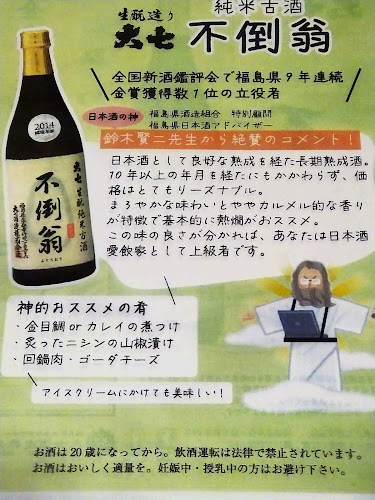 生酛造り
大七
純米古酒
不倒翁
全国新酒鑑評会で福島県9年連続
金賞獲得数1位の立役者
日本酒の神
福島県酒造組合 特別顧問
福島県日本酒アドバイザー
鈴木賢二先生から絶賛のコメント!
日本酒として良好な熟成を経た長期熟成酒。
10年以上の年月を経たにもかかわらず、価
格はとてもリーズナブル。
まろやかな味わいとややカルメル的な香り
が特徴で基本的に熱燗がおススメ。
この味の良さが分かれば、あなたは日本酒
愛飲家として上級者です。
2014
大七 生酛 純米古酒
不倒翁
神的おススメの肴
・金目鯛orカレイの煮つけ
・炙ったニシンの山椒漬け
・回鍋肉・ゴーダチーズ
アイスクリームにかけても美味しい!
お酒は20歳になってから。飲酒運転は法律で禁止されています。
お酒はおいしく適量を。妊娠中・授乳中の方はお避け下さい。